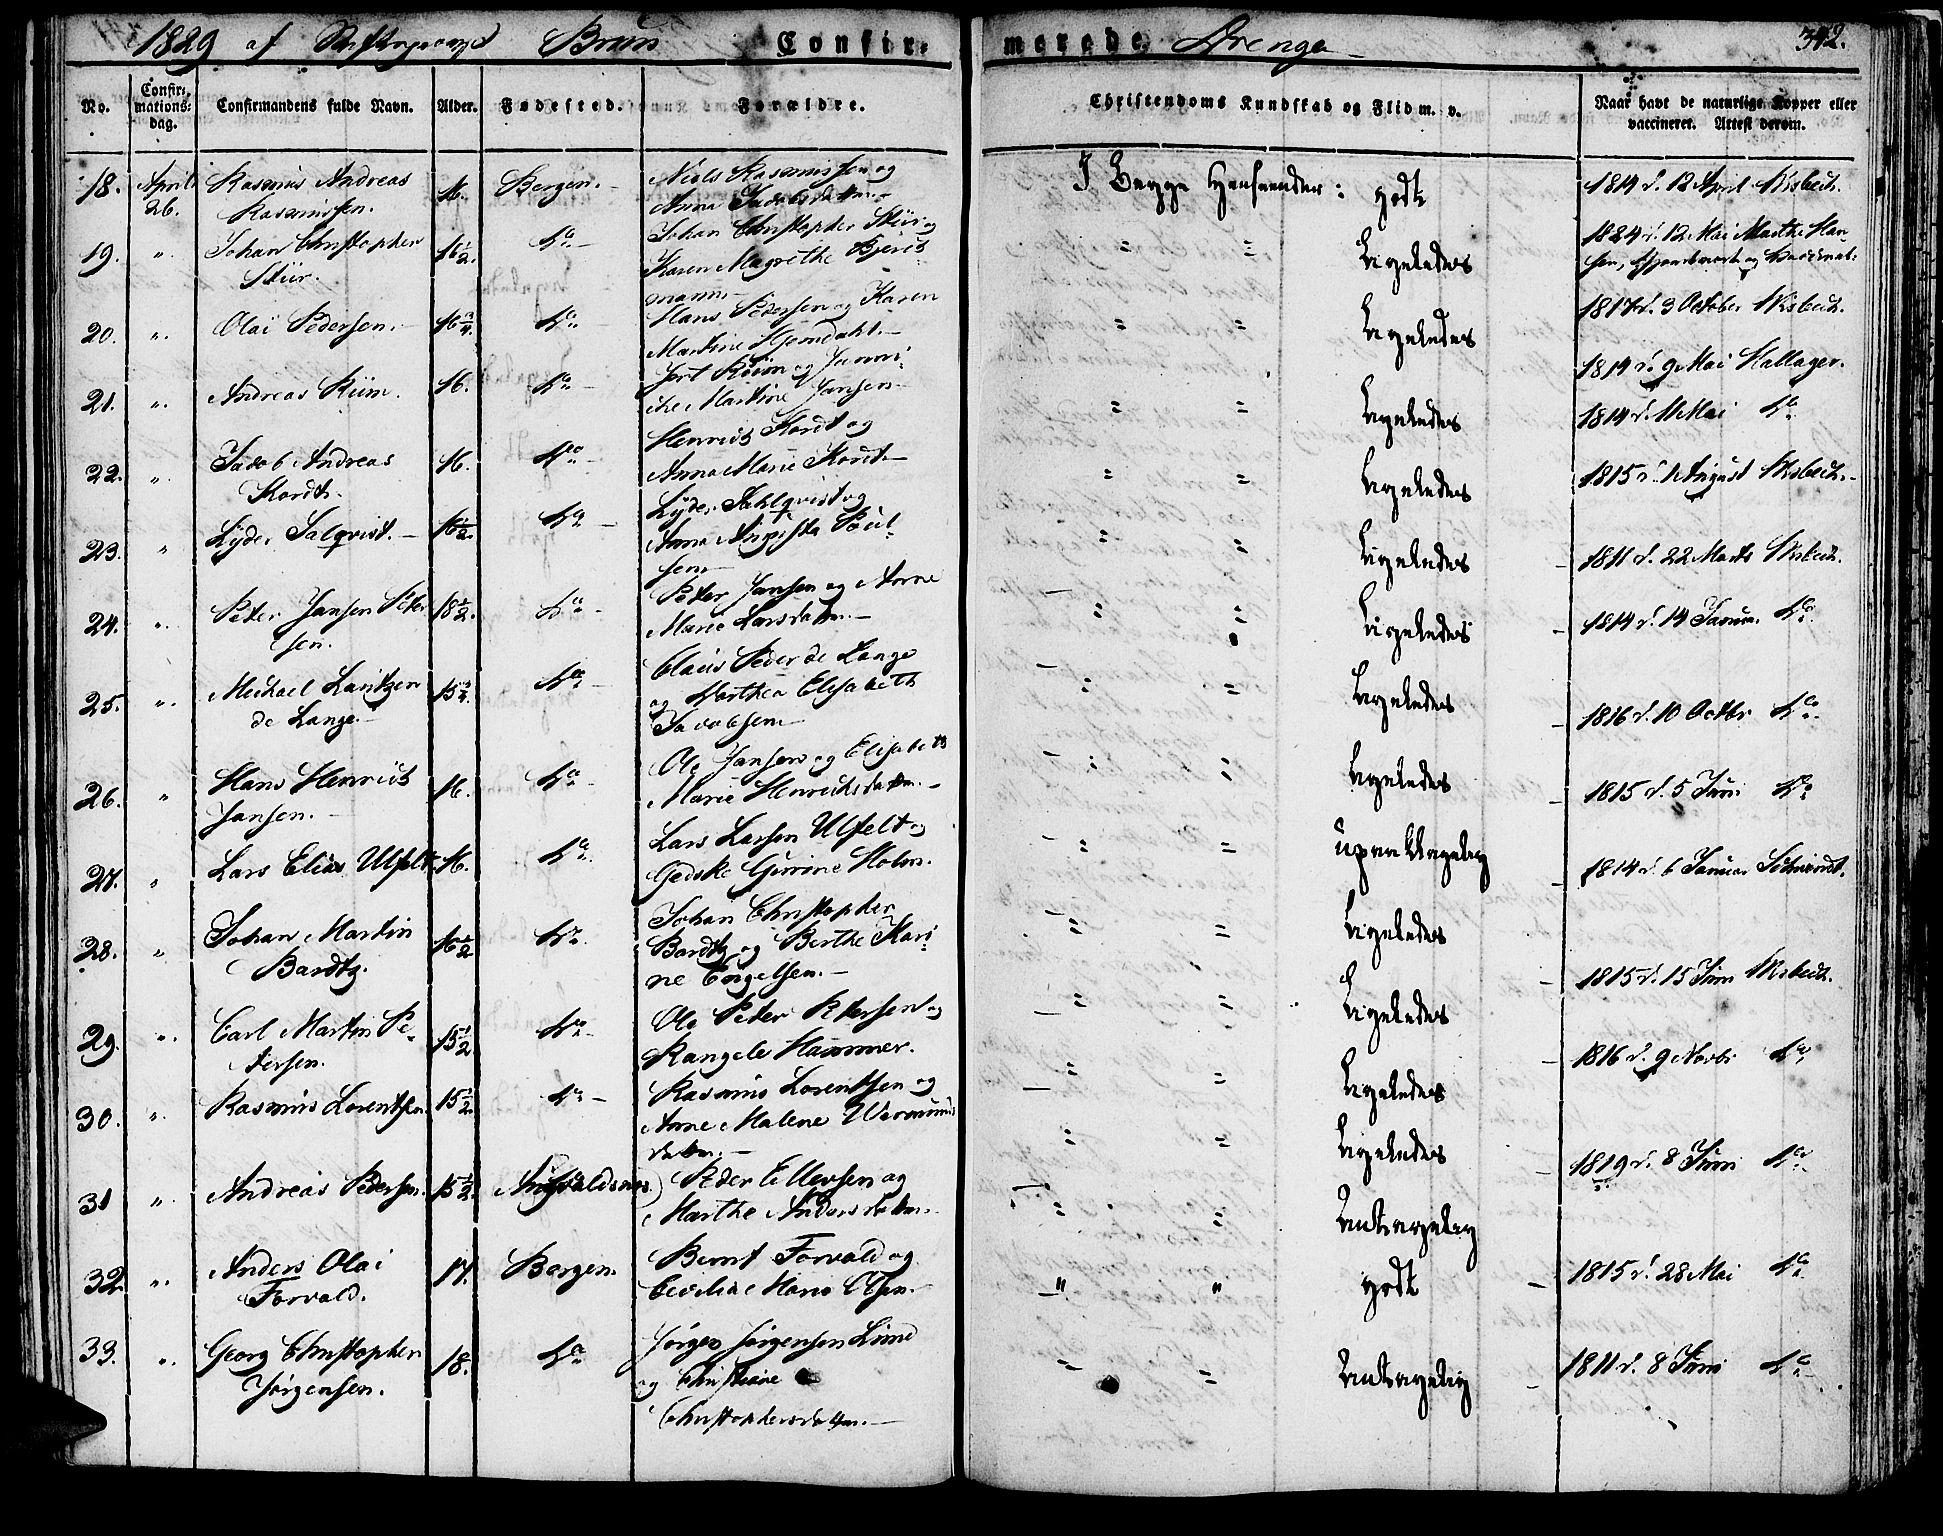 1829 af Stiftsprovst Brun Confir-
merede Drenge 342.
No. Confir-mations-dag. Confirmandens fulde Navn. Alder. Fødested. Forældre. Christendoms Kundskab og Flid m. v. Naar havt de naturlige Kopper eller vaccineret. Attest derom.
18. April 26. Rasmus Andreas Rasmussen. 16. Bergen. Niels Rasmussen og Anna Jacobsdattr. I Begge Henseender: godt 1814 d. 12 April Wisbech.
19. " Johan Christopher Stür. 16½. do Johan Christopher Stür og Karen Magrethe Bjerismann " " Ligeledes 1824 d. 12 Mai Marthe Hansen,
20. " Olai Pedersen. 16¾. do Hans Pedersen og Karen Martine Hjemdahl. " " Ligeledes 1817 d. 3 October Wisbech.
21. " Andreas Riim. 16. do Martine Jansen " " Ligeledes 1814 d. 9 Mai Hallager.
22. " Jacob Andreas Kordt. 16. do Henrich Kordt og Anna Marie Kordt " " Ligeledes 1814 d. 11 Mai do
23. " Lyder Salqvist. 16½. do Lyder Sahlqvist og Anna Augusta Poulsen " " Ligeledes 1815 d. 1 August Wisbech.
24. " Peter Jansen Petersen. 18½. do Peter Jansen og Anne Marie Larsdattr. " " Ligeledes 1811 d. 22 Marts Wisbech.
25. " Michael Lantzen de Lange. 15¾. do Claus Peder de Lange og Marthea Elisabeth Jacobsen " " Ligeledes 1814 d. 14 Januar. do
26. " Hans Henrich Jansen. 16. do Ole Jansen og Elisabeth Marie Henrichsdattr. " " Ligeledes 1816 d. 10 Octbr do
27. " Lars Elias Ulfelt 16. do Lars Larsen Ulfelt og Gedske Gurine Holm. " " 1815 d. 5 Juni do
28. " Johan Martin Bardtz. 16½ do Johan Christopher Bardtz og Berthe Karine Engelsen. " " Ligeledes 1814 d. 6 Januar
29. " Carl Martin Petersen. 15½ do Ole Peter Petersen og Rangele Hammer. " " Ligeledes 1815 d. 15 Juni Wisbech.
30. " Rasmus Lorentsen 15½ do Rasmus Lorentsen og Anne Malene Wermundsdattr. " " Ligeledes 1816 d. 9 Novbr do
31 " Andreas Pedersen. 15½. Augvaldsnes Peder Ellevsen og Marthe Andersdattr. " " Ligeledes 1819 d. 8 Juni do
32. " Anders Olai Forvald. 17. Bergen. Bernt Forvald og Cecilia Marie Olsen. " " godt 1815 d. 28 Mai do
33. " Georg Christopher Jørgensen. 18. do Jørgen Jørgensen Lund og Christiane Christophersdattr. " " 1811 d. 8 Juni do